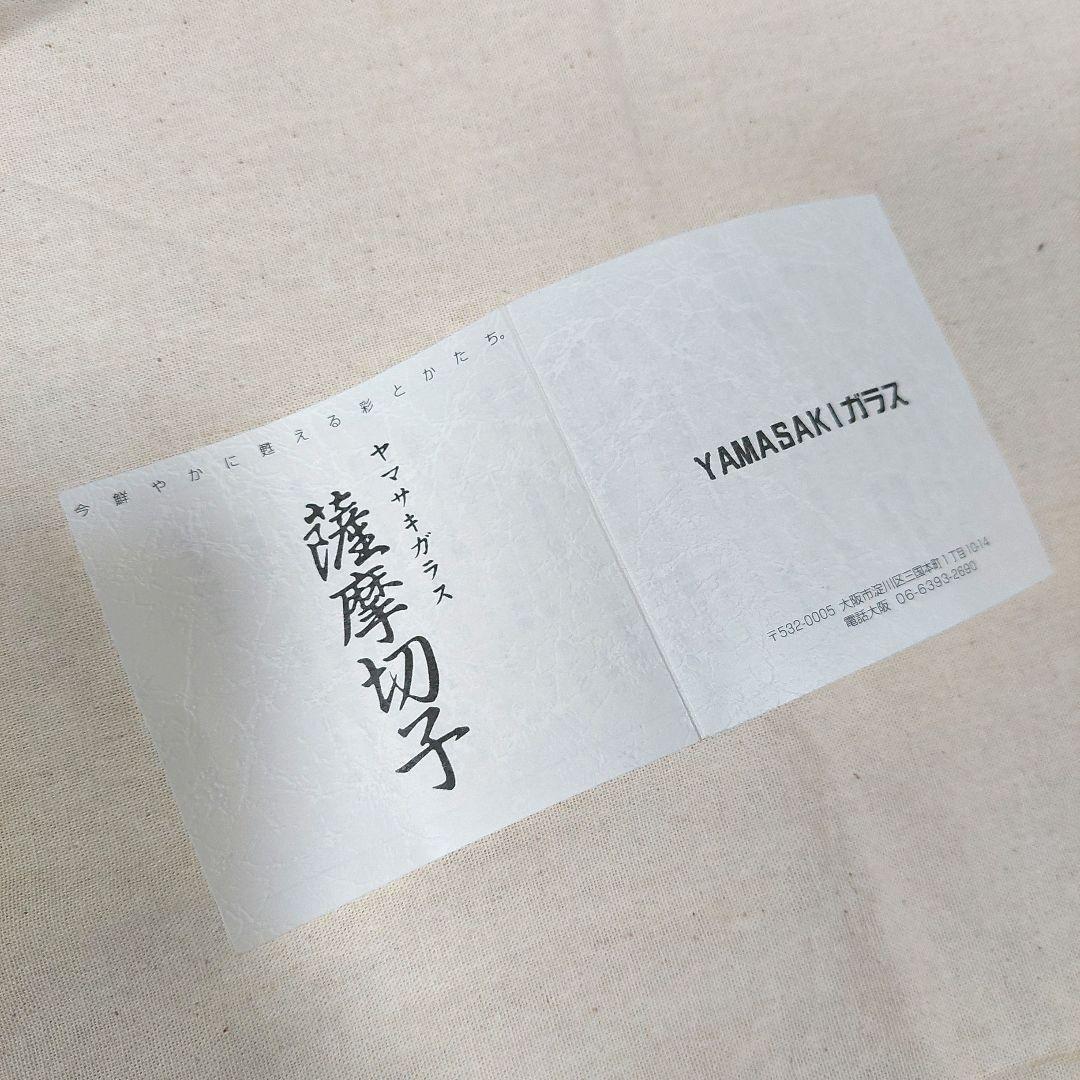 今鮮やかに甦える彩とかたち。
ヤマサキガラス
薩摩切子
YAMASAKIガラス
〒532-0005 大阪市淀川区三国本町1丁目10-14
電話大阪 06-6393-2690